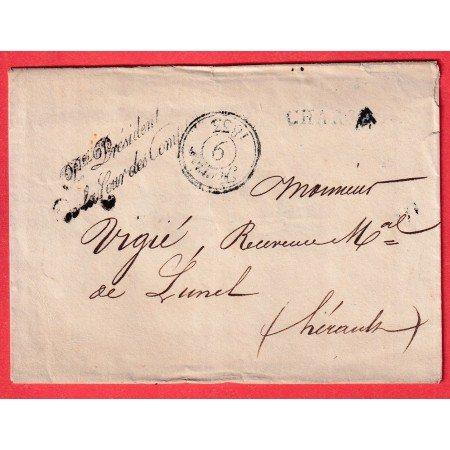 Per Président
de la Cour des Comptes
1833
9
CHAR
Monsieur
Vigié, Receveur Mal
de Lunel
(hérault)